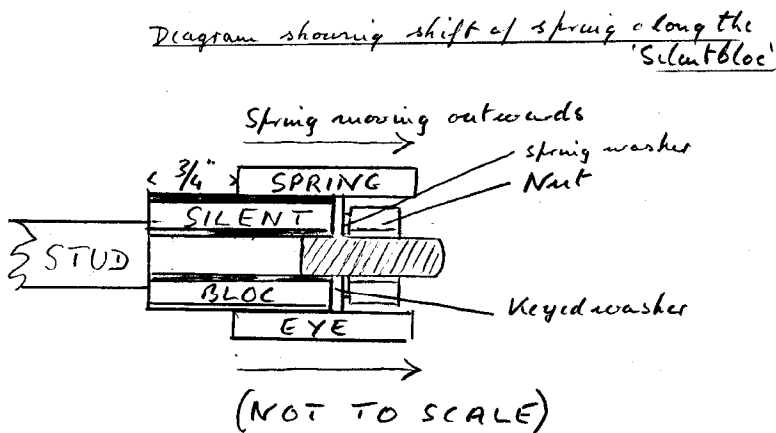 Diagram showing shift of spring along the
'Silentbloc'
Spring moving outwards
spring washer
3/4"
SPRING
Nut
SILENT
STUD
BLOC
Keyed washer
EYE
(NOT TO SCALE)